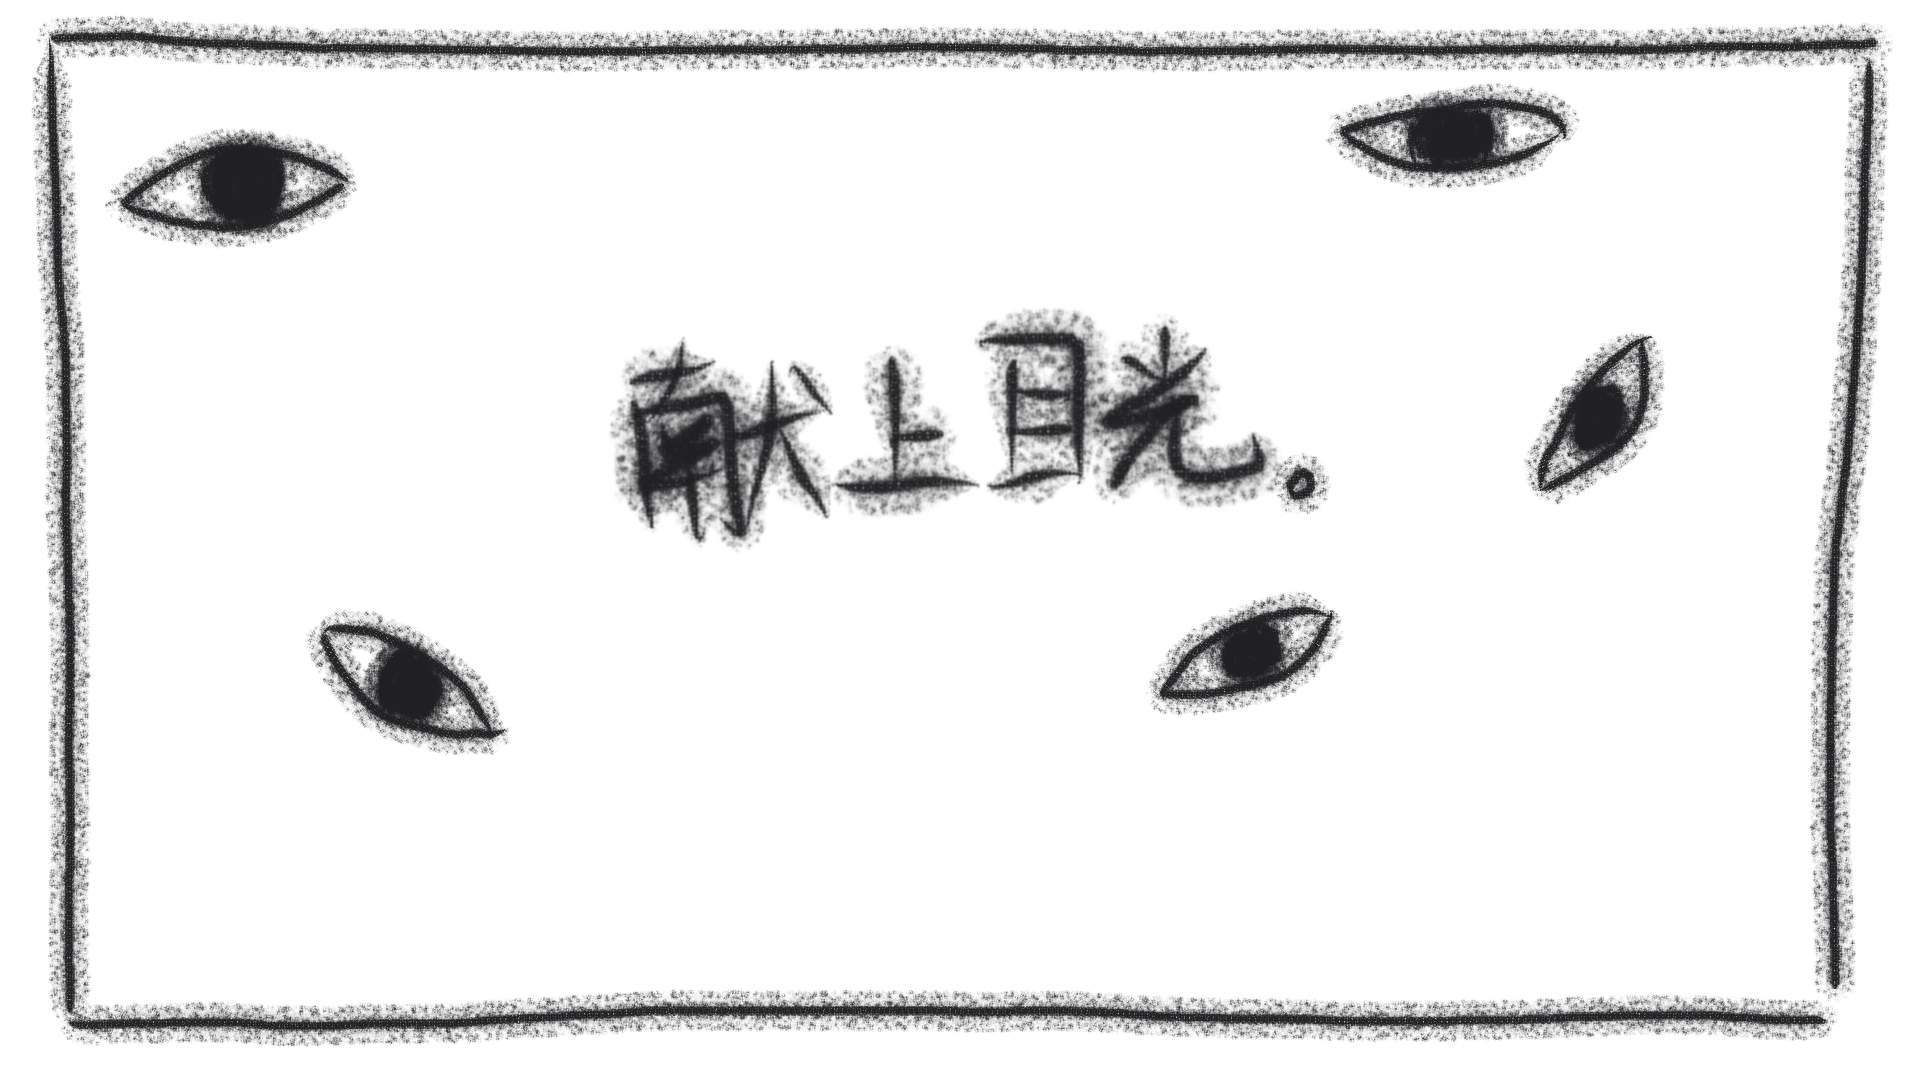 献上目光。